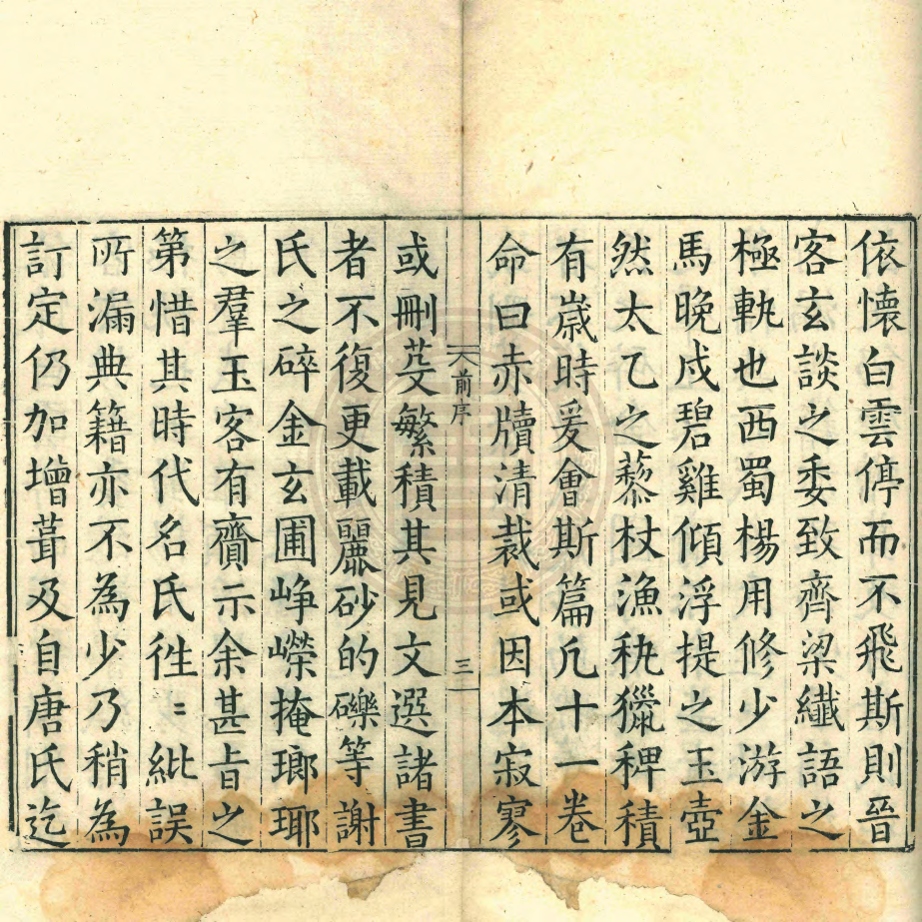 依懷白雲停而不飛斯則晉
客玄談之委致齊梁纖語之
極軌也西蜀楊用修少游金
馬晚戍碧雞傾浮提之玉壺
然太乙之藜杖漁稗獵稗積
有歲時爰會斯篇凡十一卷
命曰赤牘清裁或因本寂寥
前序
三
或刪芟繁積其見文選諸書
者不復更載麗砂的礫等謝
氏之碎金玄圃崢嶸掩瑯琊
之羣玉客有齎示余甚旨之
第惜其時代名氏徃〻紕誤
所漏典籍亦不為少乃稍為
訂定仍加增葺及自唐氏迄